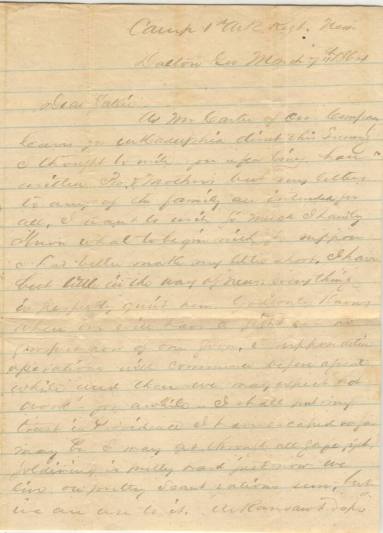 Camp 1st Ark Regt. Near
Dalton Geo March 7th 1864
Dear
As Mr Carter of our Company
leaves for Arkadelphia direct this
I thought I write you a few lines have
written Mother but my letters
to any of the family are intended for
all, I want to write so much I hardly
know what to begin with I suppose
I had better make my letter short, I have
but little in the way of news everything
is perfectly quiet here. God only knows
when we will have a fight or an
I suppose active
operations will commence before a great
while and then we may expect hot
work for awhile I shall put my
trust in Providence I have escaped so far
may be I may get through all safe,
soldiering is pretty hard just now we
live on pretty scant rations sure, but
we are use to it. Arkansaw Troops